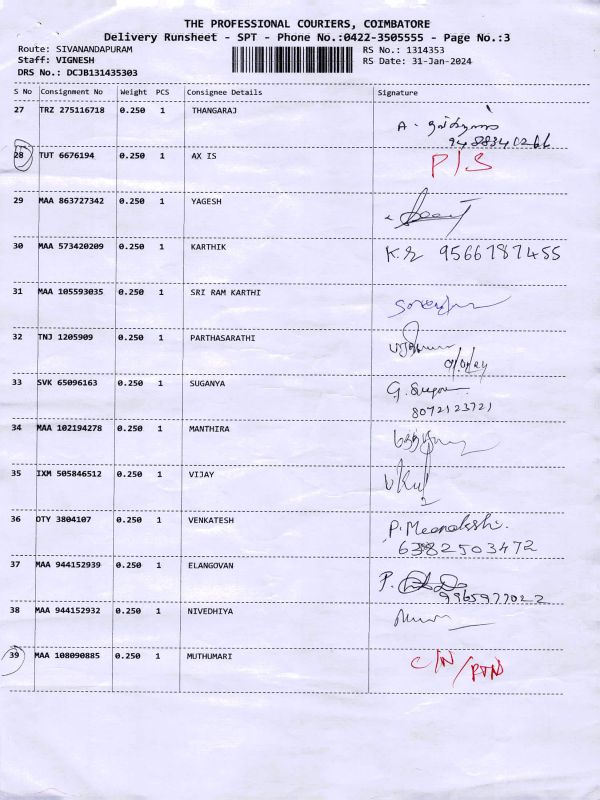 THE PROFESSIONAL COURIERS, COIMBATORE
Delivery Runsheet - SPT - Phone No.:0422-3505555 - Page No.:3
Route: SIVANANDAPURAM RS No.: 1314353
Staff: VIGNESH RS Date: 31-Jan-2024
DRS No.: DCJB131435303
S No Consignment No Weight PCS Consignee Details Signature
27 TRZ 275116718 0.250 1 THANGARAJ
A.
28 TUT 6676194 0.250 1 AX IS P/S
29 MAA 863727342 0.250 1 YAGESH
30 MAA 573420209 0.250 1 KARTHIK 9566787455
31 MAA 105593035 0.250 1 SRI RAM KARTHI
32 TNJ 1205909 0.250 1 PARTHASARATHI
33 SVK 65096163 0.250 1 SUGANYA G.
8072123721
34 MAA 102194278 0.250 1 MANTHIRA
35 IXM 505846512 0.250 1 VIJAY
36 OTY 3804107 0.250 1 VENKATESH P. Meenakshi.
6382503472
37 MAA 944152939 0.250 1 ELANGOVAN P.
9965977022
38 MAA 944152932 0.250 1 NIVEDHIYA
39 MAA 108090885 0.250 1 MUTHUMARI C/N/RTN